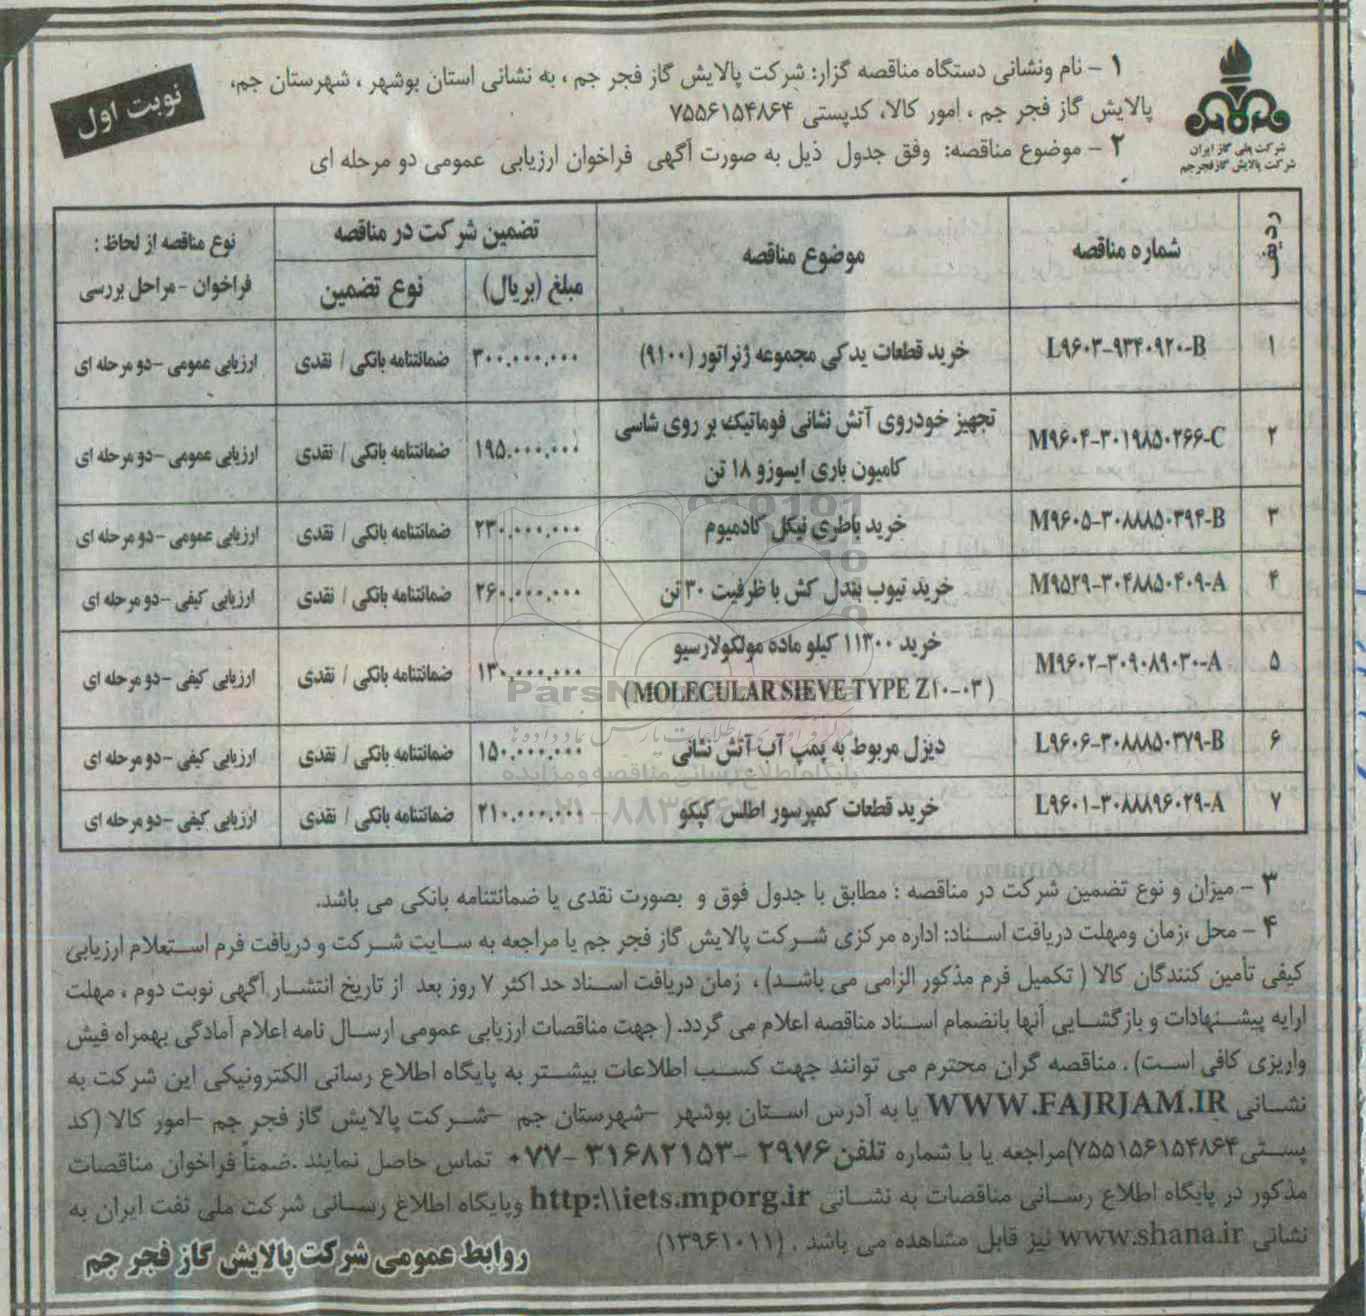 نوبت اول
شرکت ملی گاز ایران
شرکت پالایش گاز فجر جم
۱ - نام ونشانی دستگاه مناقصه گزار: شرکت پالایش گاز فجر جم ، به نشانی استان بوشهر ، شهرستان جم،
پالایش گاز فجر جم ، امور کالا، کدپستی ۷۵۵۶۱۵۴۸۶۴
۲ - موضوع مناقصه: وفق جدول ذیل به صورت آگهی فراخوان ارزیابی عمومی دو مرحله ای
ردیف | شماره مناقصه | موضوع مناقصه | تضمین شرکت در مناقصه | نوع مناقصه از لحاظ :
مبلغ (بریال) | نوع تضمین | فراخوان - مراحل بررسی
۱ | L۹۶۰۳-۹۳۴۰۹۲۰-B | خرید قطعات یدکی مجموعه ژنراتور (۹۱۰۰) | ۳۰۰.۰۰۰.۰۰۰ | ضمانتنامه بانکی / نقدی | ارزیابی عمومی -دو مرحله ای
۲ | M۹۶۰۴-۳۰۱۹۸۵۰۲۶۶-C | تجهیز خودروی آتش نشانی فوماتیک بر روی شاسی
کامیون باری ایسوزو ۱۸ تن | ۱۹۵.۰۰۰.۰۰۰ | ضمانتنامه بانکی / نقدی | ارزیابی عمومی -دو مرحله ای
۳ | M۹۶۰۵-۳۰۸۸۸۵۰۳۹۴-B | خرید باطری نیکل کادمیوم | ۲۳۰.۰۰۰.۰۰۰ | ضمانتنامه بانکی / نقدی | ارزیابی عمومی -دو مرحله ای
۴ | M۹۵۲۹-۳۰۴۸۸۵۰۴۰۹-A | خرید تیوب بندل کش با ظرفیت ۳۰ تن | ۲۶۰.۰۰۰.۰۰۰ | ضمانتنامه بانکی / نقدی | ارزیابی کیفی -دو مرحله ای
۵ | M۹۶۰۲-۳۰۹۰۸۹۰۳۰-A | خرید ۱۱۳۰۰ کیلو ماده مولکولارسیو
(MOLECULAR SIEVE TYPE Z۱۰-۰۳) | ۱۳۰.۰۰۰.۰۰۰ | ضمانتنامه بانکی / نقدی | ارزیابی کیفی -دو مرحله ای
۶ | L۹۶۰۶-۳۰۸۸۸۵۰۳۷۹-B | دیزل مربوط به پمپ آب آتش نشانی | ۱۵۰.۰۰۰.۰۰۰ | ضمانتنامه بانکی / نقدی | ارزیابی کیفی -دو مرحله ای
۷ | L۹۶۰۱-۳۰۸۸۸۹۶۰۲۹-A | خرید قطعات کمپرسور اطلس کپکو | ۲۱۰.۰۰۰.۰۰۰ | ضمانتنامه بانکی / نقدی | ارزیابی کیفی -دو مرحله ای
۳ - میزان و نوع تضمین شرکت در مناقصه : مطابق با جدول فوق و بصورت نقدی یا ضمانتنامه بانکی می باشد.
۴ - محل ،زمان ومهلت دریافت اسناد: اداره مرکزی شرکت پالایش گاز فجر جم یا مراجعه به سایت شرکت و دریافت فرم استعلام ارزیابی
کیفی تأمین کنندگان کالا ( تکمیل فرم مذکور الزامی می باشد) ، زمان دریافت اسناد حداکثر ۷ روز بعد از تاریخ انتشار آگهی نوبت دوم ، مهلت
ارایه پیشنهادات و بازگشایی آنها بانضمام اسناد مناقصه اعلام می گردد. ( جهت مناقصات ارزیابی عمومی ارسال نامه اعلام آمادگی بهمراه فیش
واریزی کافی است) . مناقصه گران محترم می توانند جهت کسب اطلاعات بیشتر به پایگاه اطلاع رسانی الکترونیکی این شرکت به
نشانی WWW.FAJRJAM.IR یا به آدرس استان بوشهر -شهرستان جم -شرکت پالایش گاز فجر جم -امور کالا (کد
پستی۷۵۵۱۵۶۱۵۴۸۶۴)مراجعه یا با شماره تلفن ۲۹۷۶ -۳۱۶۸۲۱۵۳ -۰۷۷ تماس حاصل نمایند .ضمناً فراخوان مناقصات
مذکور در پایگاه اطلاع رسانی مناقصات به نشانی http:\\iets.mporg.ir وپایگاه اطلاع رسانی شرکت ملی نفت ایران به
نشانی www.shana.ir نیز قابل مشاهده می باشد . (۱۳۹۶۱۰۱۱)
روابط عمومی شرکت پالایش گاز فجر جم